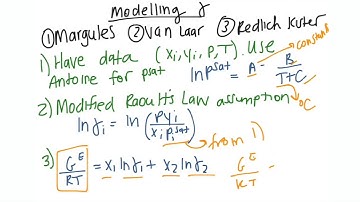 Modelling γ
① Margules ② Van Laar ③ Redlich Kister
1) Have data (xi, yi, P, T). Use
Antoine for psat
ln psat = A - B/(T+C)
constants
°C
2) Modified Raoult's Law assumption
ln γi = ln (Pyi / xi pisat)
from 1)
3) G^E/RT = x1 ln γ1 + x2 ln γ2
G^E/RT =